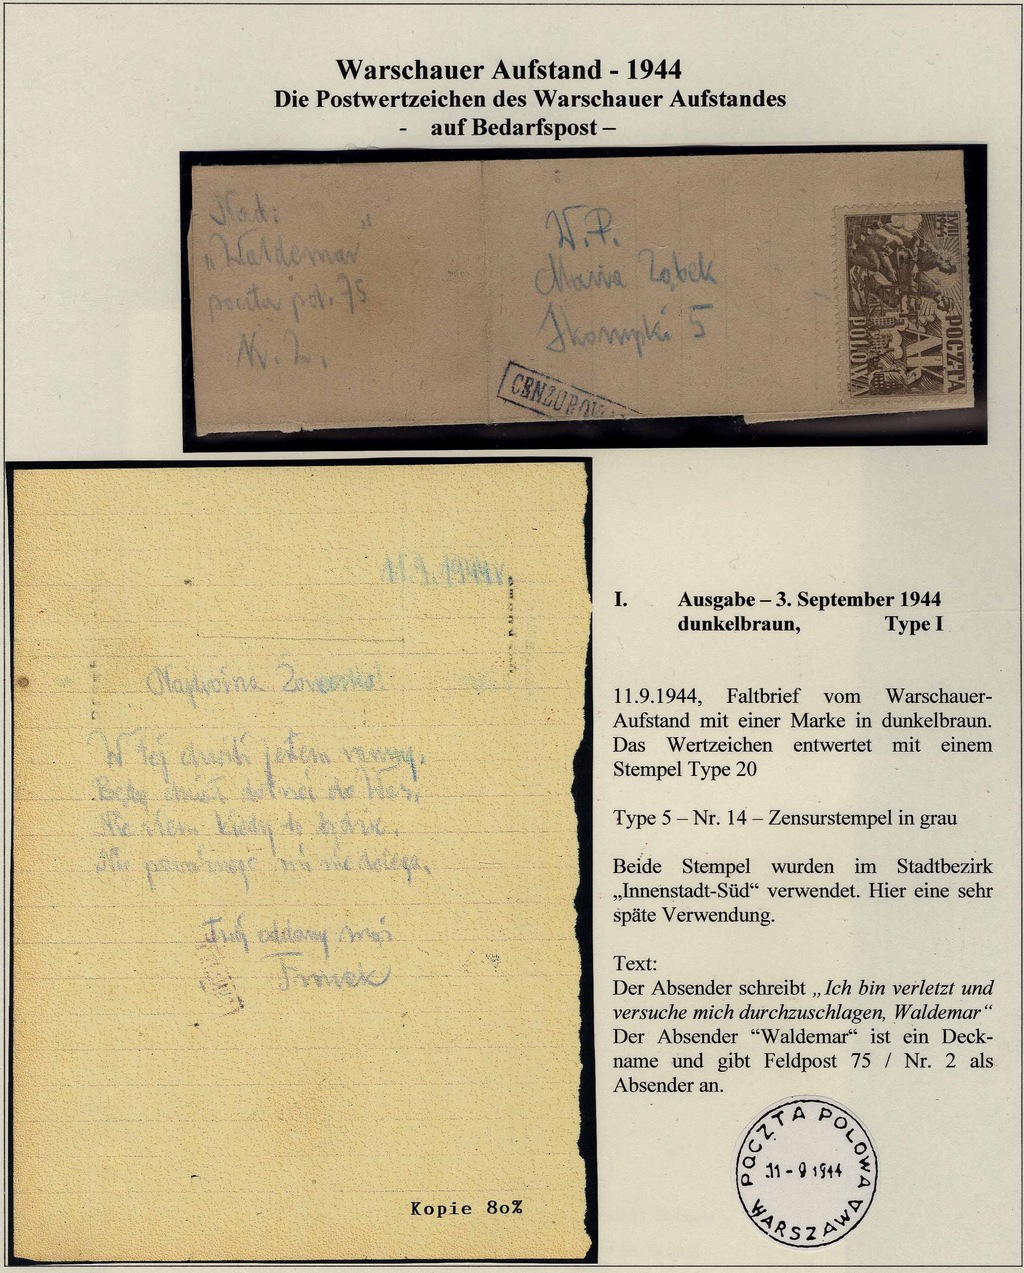 Warschauer Aufstand - 1944
Die Postwertzeichen des Warschauer Aufstandes
- auf Bedarfspost –
Nad:
"Waldemar"
poczta pol. 75
Nr. 2.
W.P.
Maria Ząbek
5
CENZUROWA
1.VIII 1944
POCZTA
AK
POLOWA
11.9.1944r.
Najdroższa
W tej chwili jestem ranny,
Będę dotrzeć do Was,
Nie wiem kiedy to będzie,
Nic poważnego mi nie dolega,
Twój oddany mąż
Franek
Kopie 80%
I. Ausgabe – 3. September 1944
dunkelbraun, Type I
11.9.1944, Faltbrief vom Warschauer-
Aufstand mit einer Marke in dunkelbraun.
Das Wertzeichen entwertet mit einem
Stempel Type 20
Type 5 – Nr. 14 – Zensurstempel in grau
Beide Stempel wurden im Stadtbezirk
„Innenstadt-Süd“ verwendet. Hier eine sehr
späte Verwendung.
Text:
Der Absender schreibt „Ich bin verletzt und
versuche mich durchzuschlagen, Waldemar“
Der Absender “Waldemar“ ist ein Deck-
name und gibt Feldpost 75 / Nr. 2 als
Absender an.
POCZTA POLOWA
11 - 9 1944
WARSZAWA